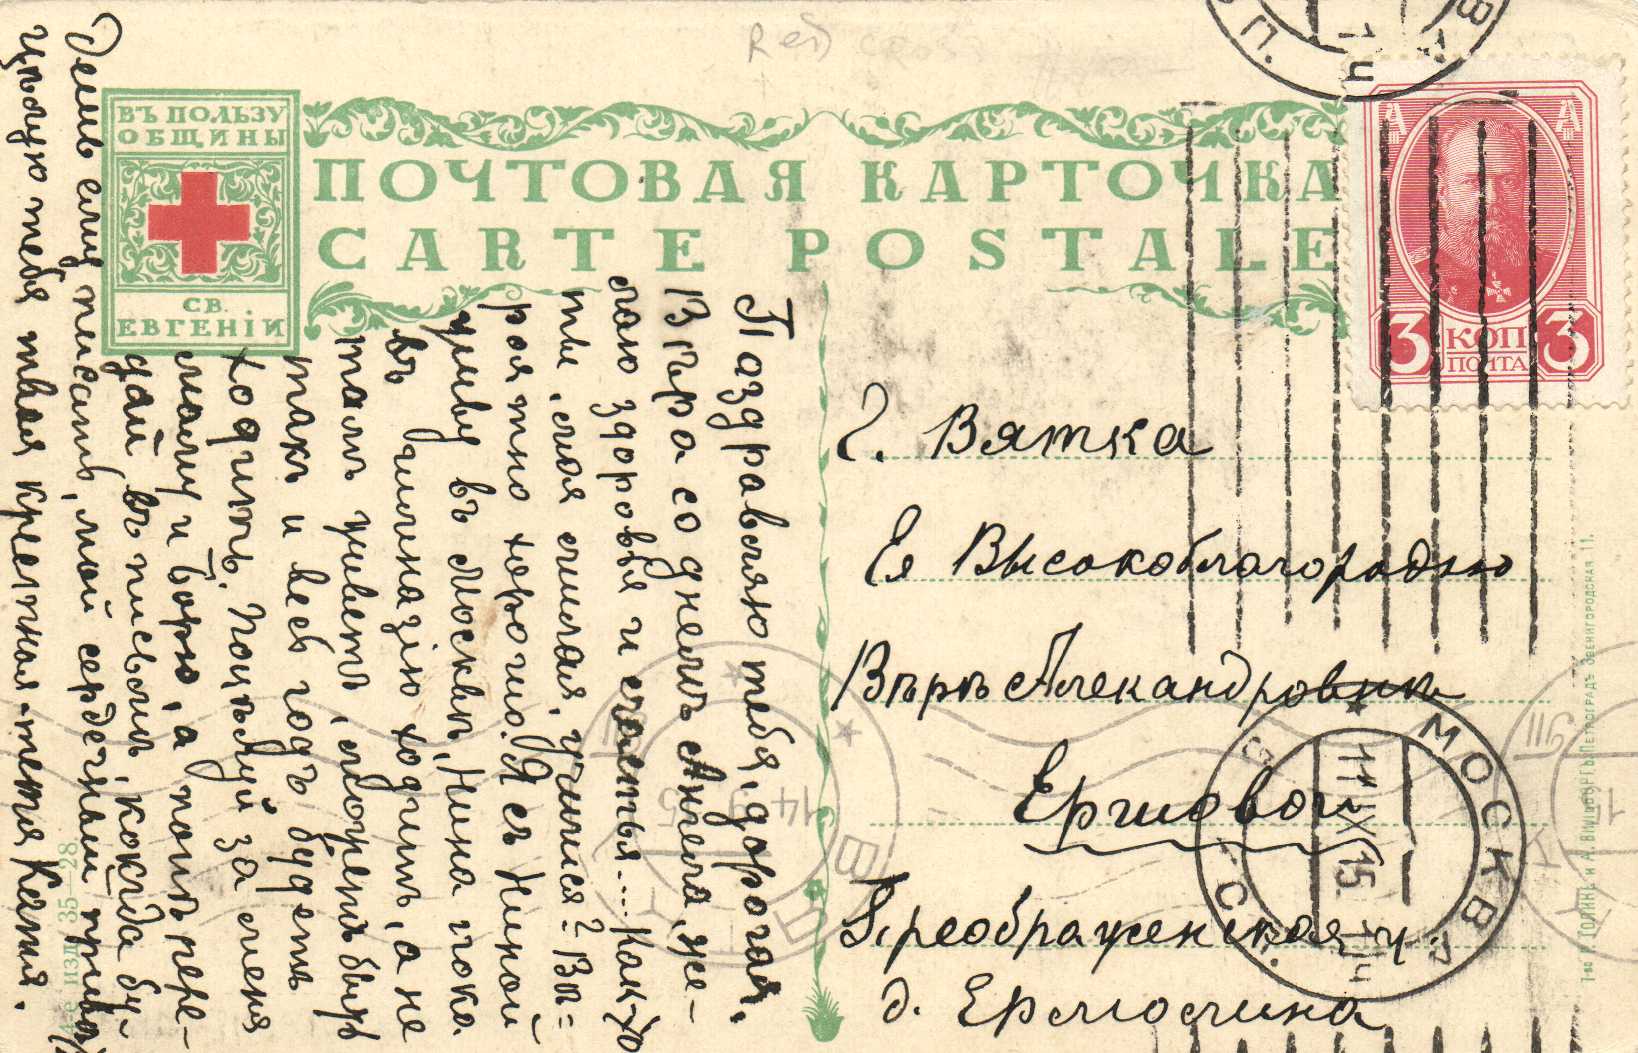 Red Cross
ВЪ ПОЛЬЗУ
ОБЩИНЫ
СВ.
ЕВГЕНІИ
ПОЧТОВАЯ КАРТОЧКА
CARTE POSTALE
3 КОП 3
ПОЧТА
г. Вятка
Ея Высокоблагородію
Вѣрѣ Александровнѣ
Ершовой
Преображенская ул.
д. Ермолина
Поздравляю тебя, дорогая,
Вѣра со днемъ Ангела, же-
лаю здоровья и счастья.... Как
ти, моя милая, учишься? Вѣ=
роятно хорошо. Я съ Ниной
живу въ Москвѣ, Нина пока
въ гимназію ходитъ, а не
тамъ живетъ, можетъ быть
такъ и весь годъ будетъ
ходить. Поцѣлуй за меня
маму и Борю, а папѣ пере-
дай въ письмѣ, когда бу-
дешь ему писать, мой сердечный привѣтъ
Цѣлую тебя твоя крестная-тетя Катя.
МОСКВА
11 IX 15
4-е изд. 35—28
Т-во Р. ГОЛИКЕ и А. ВИЛЬБОРГЪ. ПЕТРОГРАДЪ, ЗВЕНИГОРОДСКАЯ 11.